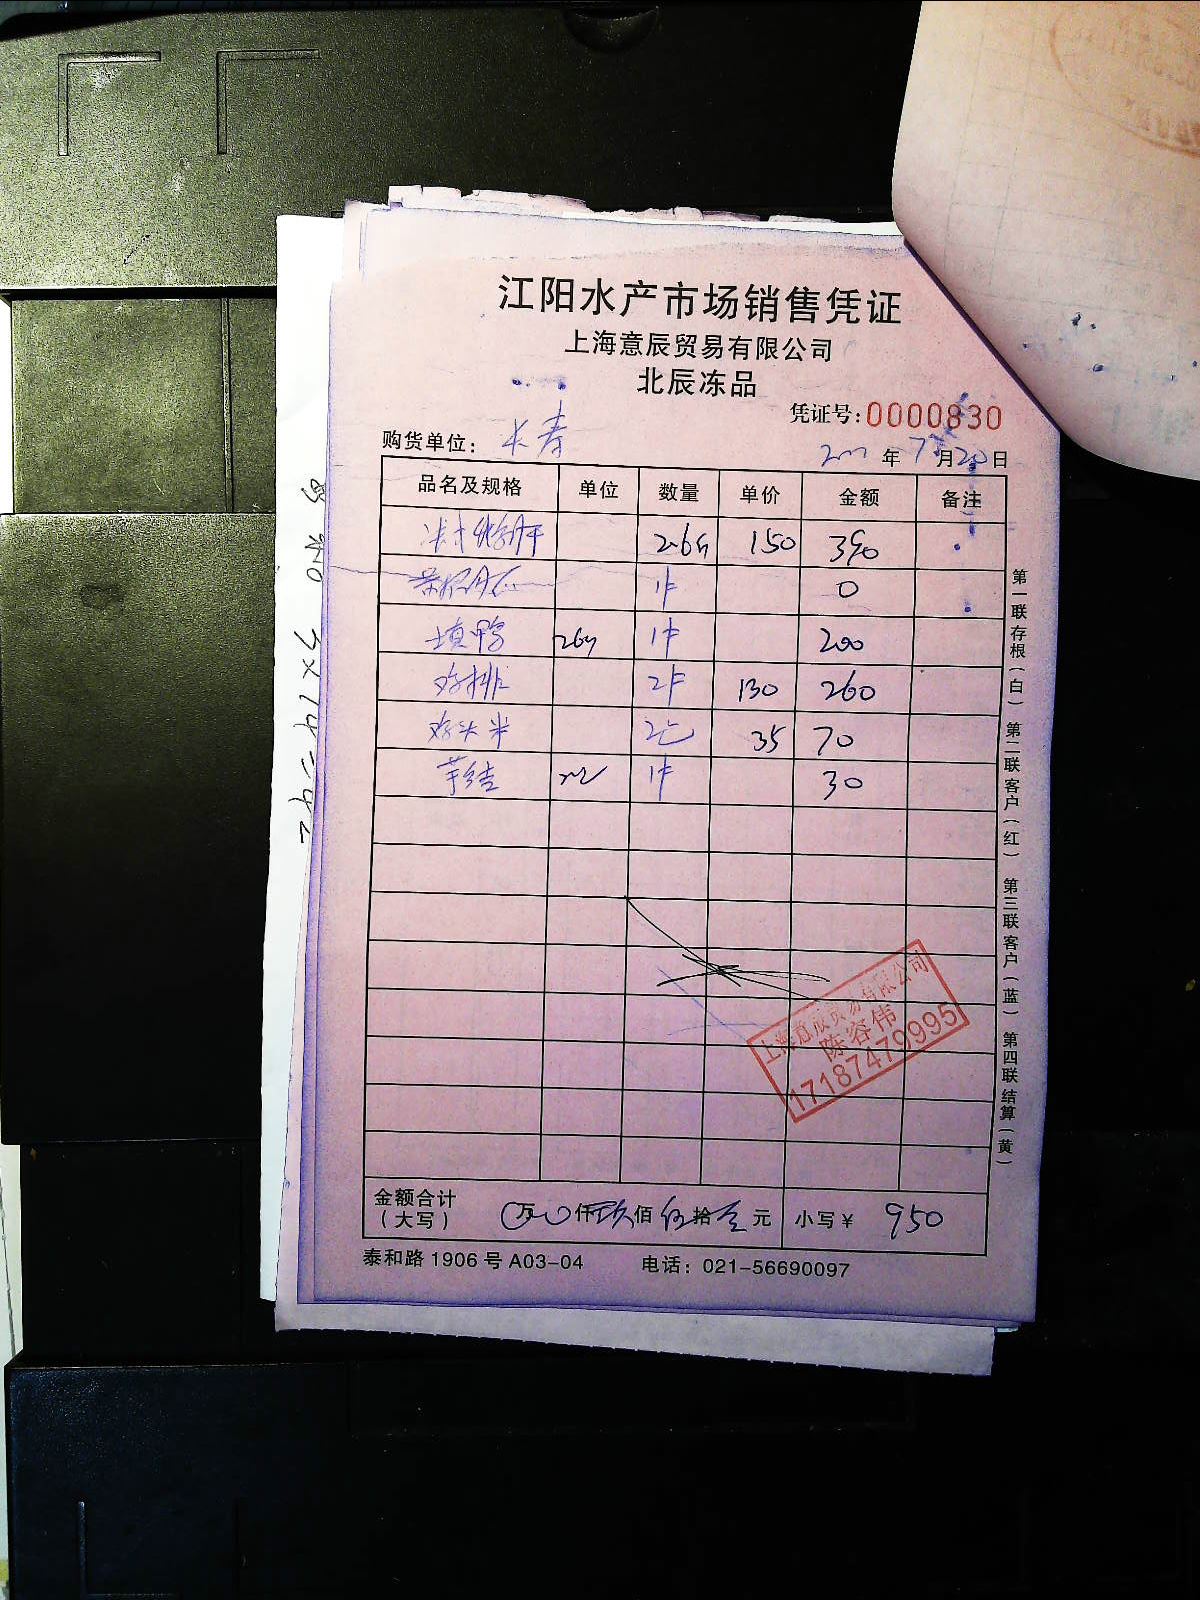 江阳水产市场销售凭证
上海意辰贸易有限公司
北辰冻品
凭证号:0000830
购货单位: 长寿
年 7月20日
品名及规格 单位 数量 单价 金额 备注
2.6斤 150 390
1件 0
填鸭 1件 200
鸡排 2件 130 260
鸡头米 2包 35 70
芋结 1件 30
上海意辰贸易有限公司
陈容伟
17187479995
金额合计
(大写) 万 仟玖佰伍拾 元 小写¥ 950
泰和路1906号A03-04 电话:021-56690097
第一联存根(白) 第二联客户(红) 第三联客户(蓝) 第四联结算(黄)